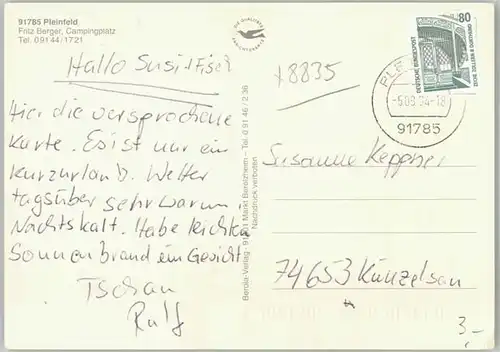 91785 Pleinfeld
Fritz Berger, Campingplatz
Tel. 0 91 44 / 17 21
Hallo Susi + Fisch
Hier die versprochene
Karte. Es ist nur ein
Kurzurlaub. Wetter
tagsüber sehr warm -
Nachts kalt. Habe leichten
Sonnenbrand im Gesicht
Tschau
Ralf
DIE QUALITÄTS
ANSICHTSKARTE
Berola-Verlag - 91801 Markt Berolzheim - Tel. 0 91 46 / 2 36
Nachdruck verboten
+8835
80
DEUTSCHE BUNDESPOST
ZECHE ZOLLERN II DORTMUND
PLE
-5.08.94-18
91785
Susanne Keppner
74653 Künzelsau
3,-